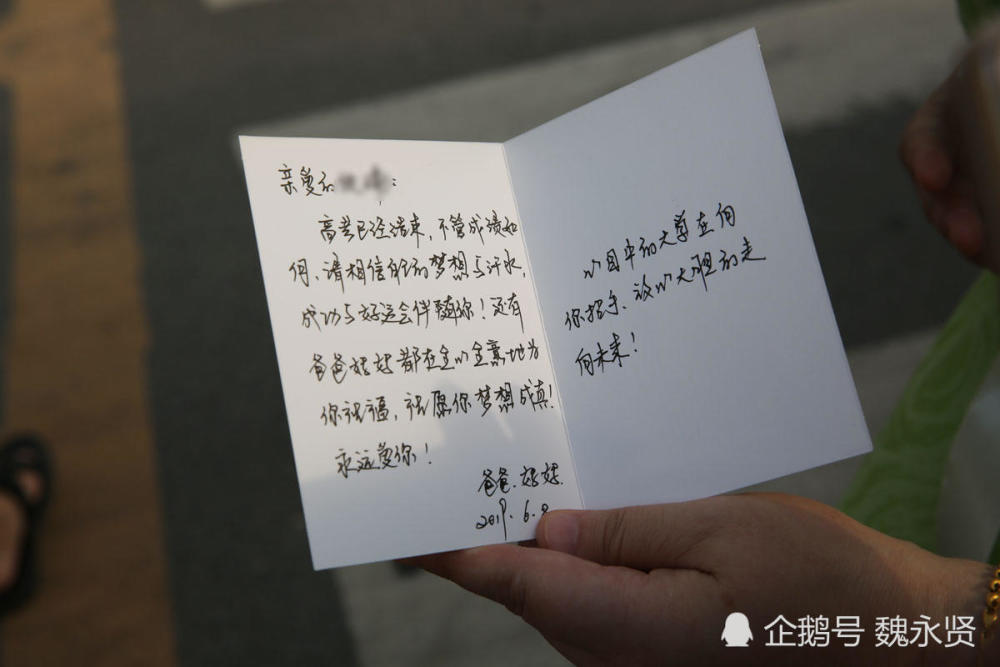 亲爱的
高考已经结束,不管成绩如
何、请相信你的梦想与汗水,
成功与好运会伴随你!还有
爸爸妈妈都在全心全意地为
你祝福,祝愿你梦想成真!
永远爱你!
爸爸.妈妈.
2019.6.8
心目中的大学在向
你招手、放心大胆的走
向未来!
企鹅号 魏永贤